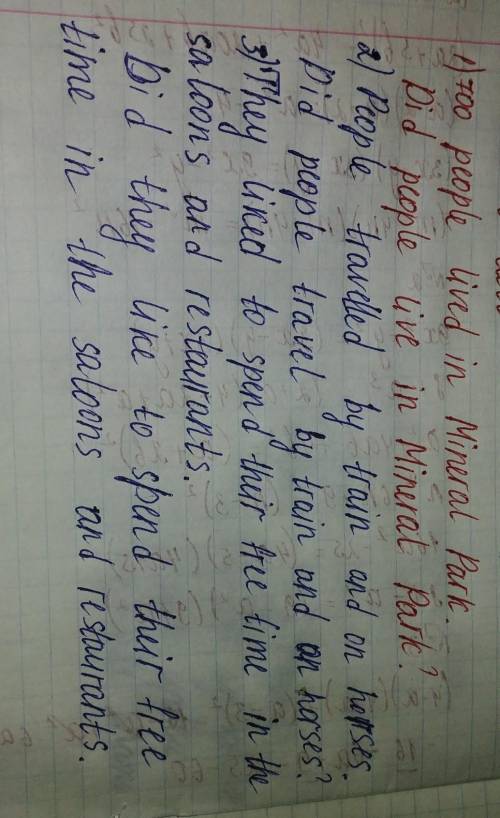 1) 700 people lived in Mineral Park.
Did people live in Mineral Park?
2) People travelled by train and on horses.
Did people travel by train and on horses?
3) They liked to spend thuir free time in the
saloons and restaurants.
Did they like to spend thuir free
time in the saloons and restaurants.